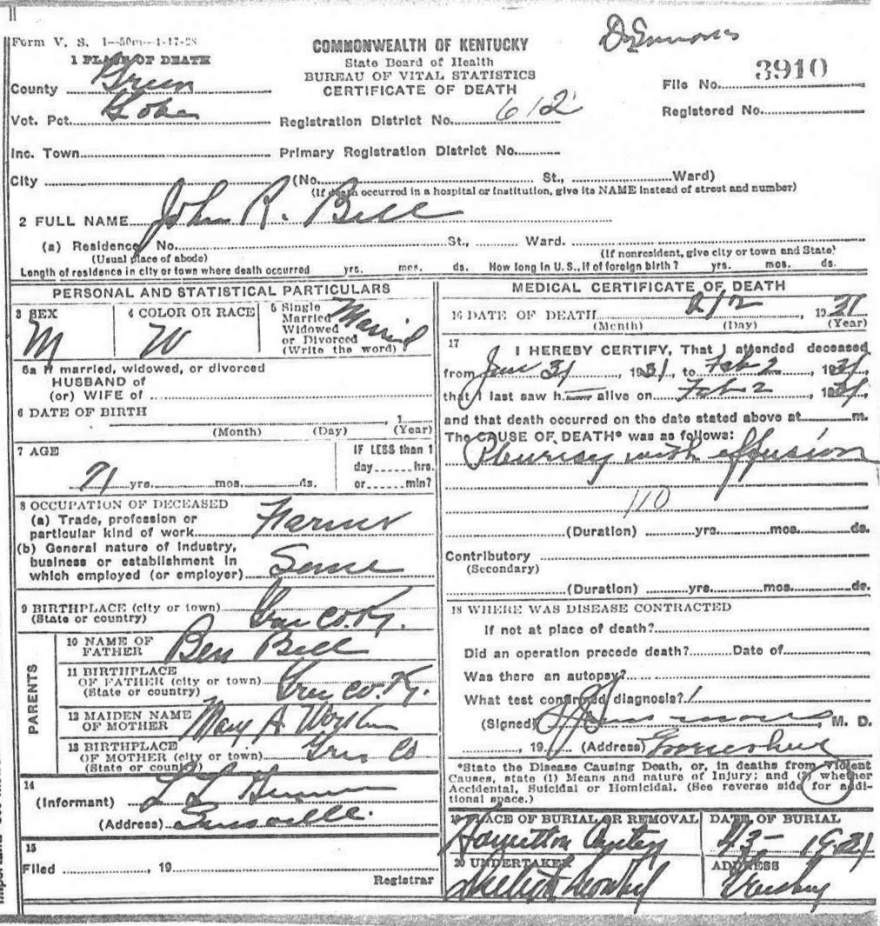 Form V. S. 1—50m—4-17-28
COMMONWEALTH OF KENTUCKY
State Board of Health
BUREAU OF VITAL STATISTICS
CERTIFICATE OF DEATH
File No. 3910
Registered No.
1 PLACE OF DEATH
County Green
Vot. Pct.
Registration District No. 612
Inc. Town
Primary Registration District No.
City (No. St., Ward)
(If death occurred in a hospital or institution, give its NAME instead of street and number)
2 FULL NAME John R. Bell
(a) Residence No. St., Ward.
(Usual place of abode) (If nonresident, give city or town and State)
Length of residence in city or town where death occurred yrs. mos. ds. How long in U. S., if of foreign birth? yrs. mos. ds.
PERSONAL AND STATISTICAL PARTICULARS
3 SEX
M
4 COLOR OR RACE
W
5 Single
Married
Widowed
or Divorced
(Write the word)
Married
5a If married, widowed, or divorced
HUSBAND of
(or) WIFE of
6 DATE OF BIRTH
(Month) (Day) (Year)
7 AGE
71 yrs. mos. ds.
IF LESS than 1
day hrs.
or min?
8 OCCUPATION OF DECEASED
(a) Trade, profession or
particular kind of work Farmer
(b) General nature of industry,
business or establishment in
which employed (or employer) Same
9 BIRTHPLACE (city or town)
(State or country) Green Co. Ky.
PARENTS
10 NAME OF
FATHER Ben Bell
11 BIRTHPLACE
OF FATHER (city or town)
(State or country) Green Co. Ky.
12 MAIDEN NAME
OF MOTHER Mary A
13 BIRTHPLACE
OF MOTHER (city or town)
(State or country) Green Co
14
(Informant) L L
(Address)
15
Filed , 19
Registrar
MEDICAL CERTIFICATE OF DEATH
16 DATE OF DEATH 2/2, 1931
(Month) (Day) (Year)
17
I HEREBY CERTIFY, That I attended deceased
from Jan 31, 1931, to Feb 2, 1931,
that I last saw h alive on Feb 2, 1931,
and that death occurred on the date stated above at m.
The CAUSE OF DEATH* was as follows:
Pleurisy with effusion
110
(Duration) yrs. mos. ds.
Contributory
(Secondary)
(Duration) yrs. mos. ds.
18 WHERE WAS DISEASE CONTRACTED
If not at place of death?
Did an operation precede death? Date of
Was there an autopsy?
What test confirmed diagnosis?
(Signed) , M. D.
, 19 (Address)
*State the Disease Causing Death, or, in deaths from Violent
Causes, state (1) Means and nature of Injury; and (2) whether
Accidental, Suicidal or Homicidal. (See reverse side for addi-
tional space.)
19 PLACE OF BURIAL OR REMOVAL
DATE OF BURIAL
20 UNDERTAKER
ADDRESS